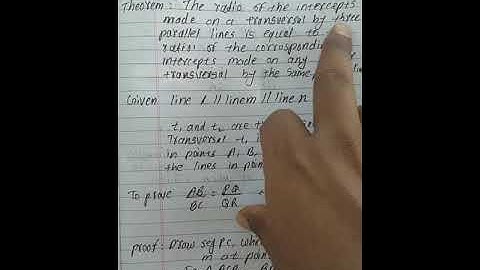 Theorem: The radio of the intercepts
made on a transversal by three
parallel lines is equal to
ratiol of the correspondin
intercepts made on any
transversal by the same
Given line l // line m // line n
t, and t2 are t
Transversal t,
in points A, B,
the lines in poin
To prove AB/BC = PQ/QR
proof: Draw seg PC, whe
m at poin